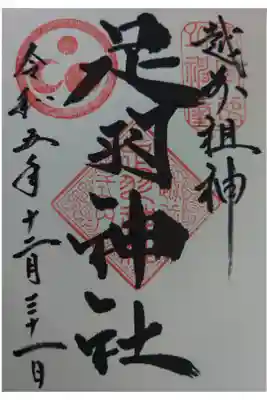 越乃祖神
足羽神社
令和五年十二月三十一日